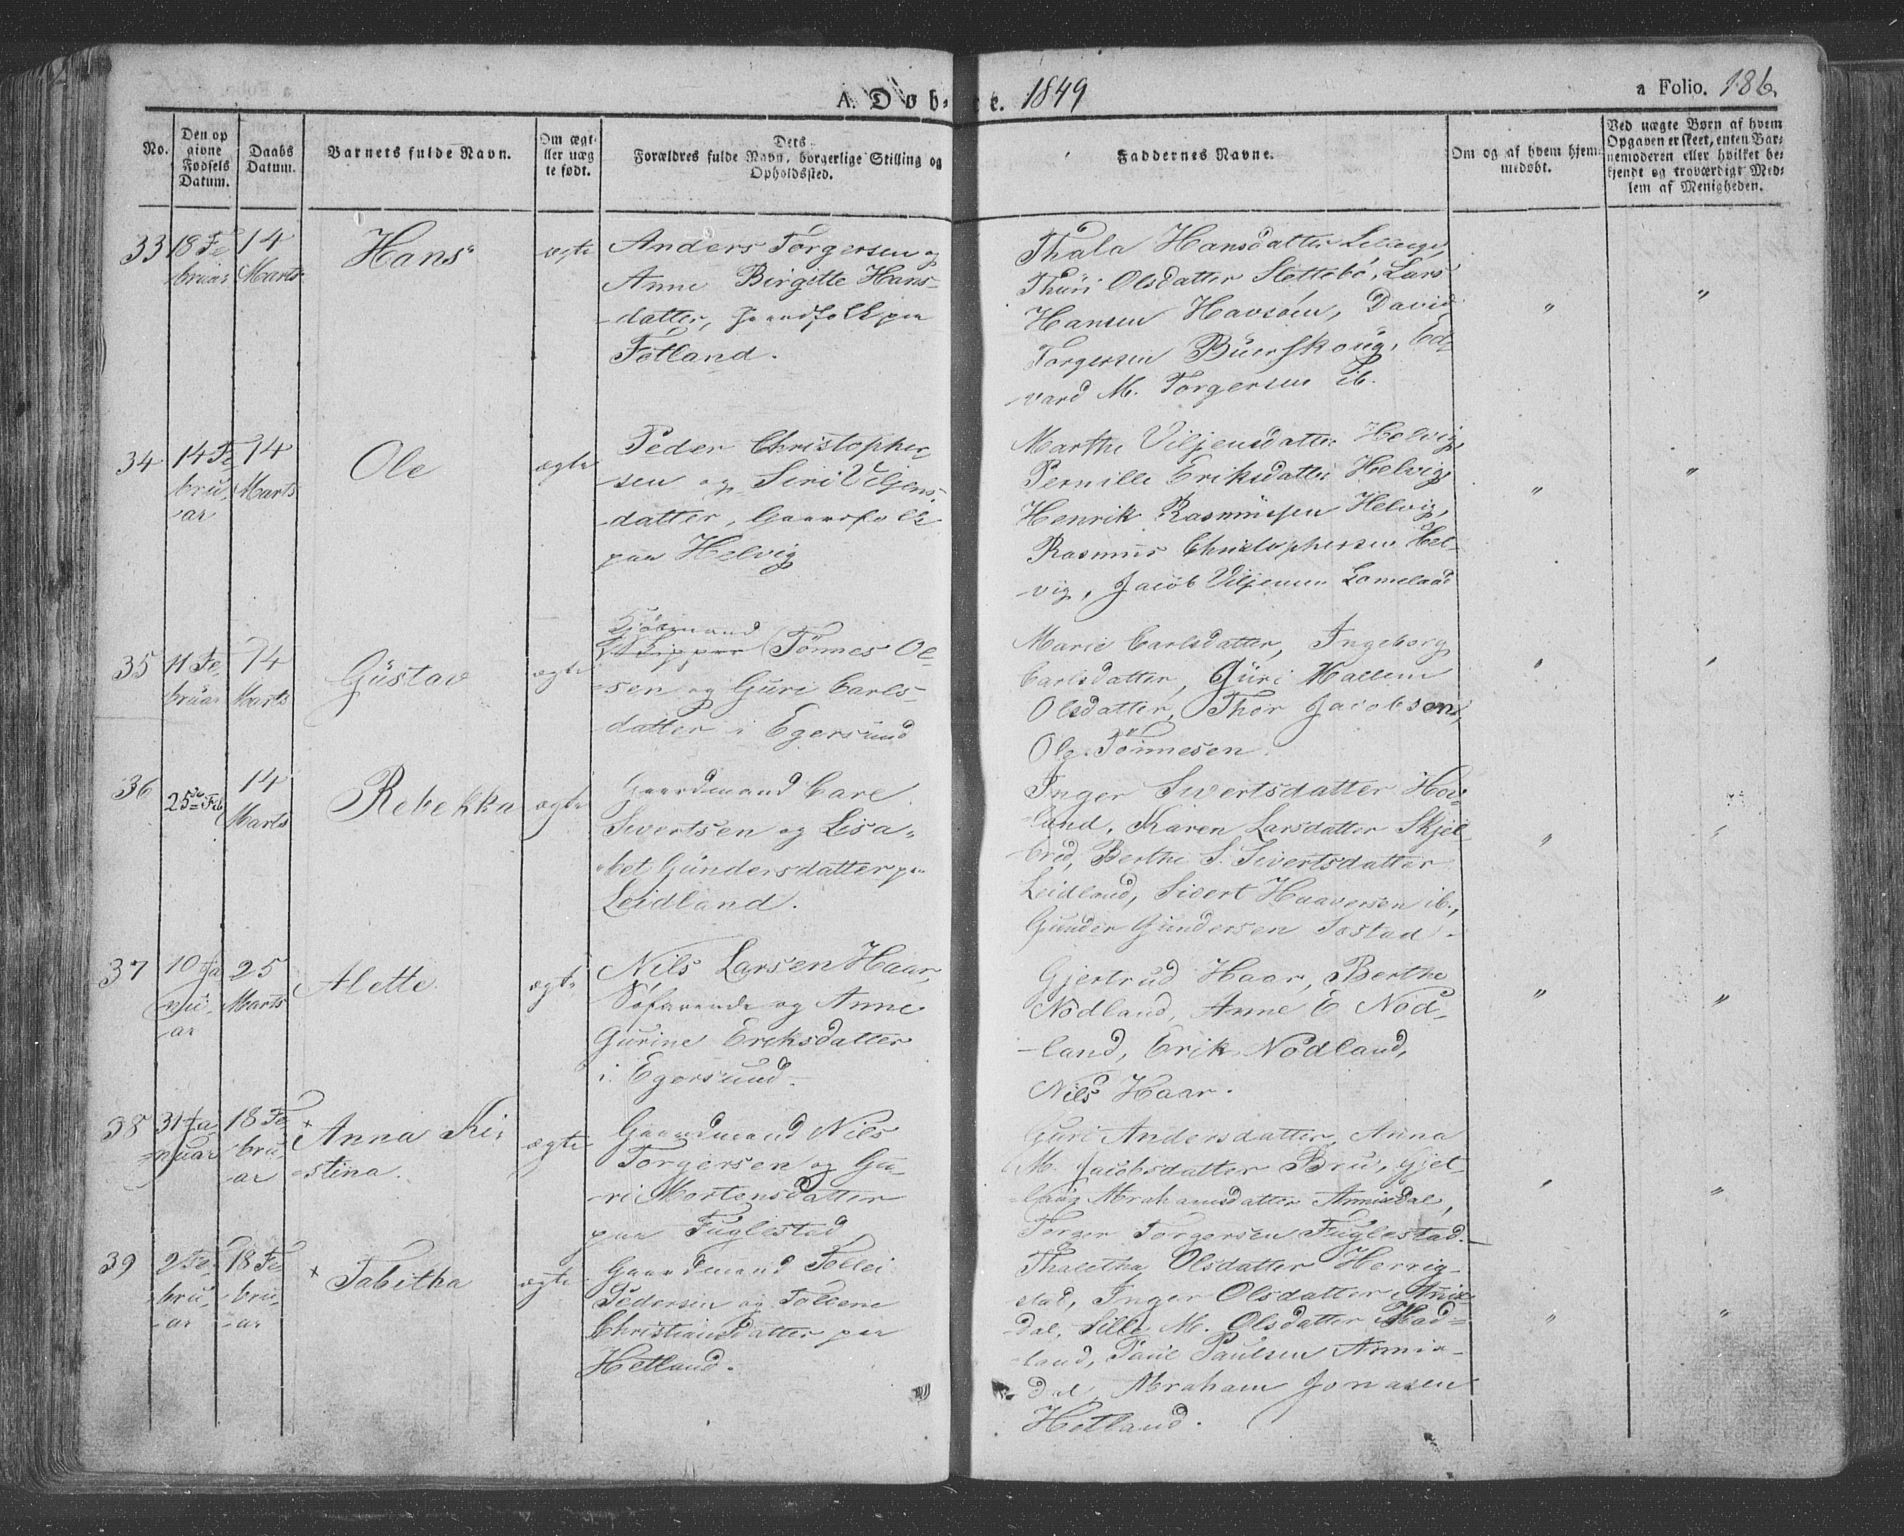 A. Døb- te. 1849 a Folio. 186.
No.
Den op
givne
Fødsels
Datum.
Daabs
Datum.
Barnets fulde Navn.
Om ægt-
eller uæg
te født.
Dets
Forældres fulde Navn, borgerlige Stilling og
Opholdssted.
Faddernes Navne.
Om og af hvem hjem-
medøbt.
Ved uægte Børn af hvem
Opgaven er skeet, enten Bar-
nemoderen eller hvilket be-
kjendt og troværdigt Med-
lem af Menigheden.
33 18 Fe
bruar
14
Marts
Hans
ægte
Anders Torgersen og
Anne Birgitte Hans-
datter, Gaardfolk paa
Fotland.
Thala Hansdatter
Thüri Olsdatter Slettebö, Lars
Hansen Havsöen, David
Torgersen Büerskoug, Ed-
vard M. Torgersen ib.
" "
34 14 Fe
bru-
ar
14
Marts
Ole
ægte
Peder Christopher-
sen og Siri Viljens-
datter, Gaardfolk
paa Helvig
Marthe Viljensdatter Helvig,
Pernille Eriksdatter Helvig,
Henrik Rasmussen Helvig,
Rasmus Christophersen Hel-
vig, Jacob Viljensen Lomeland
" "
35 11 Fe-
bruar
14
Marts
Güstav
ægte
Kjöbmand
Skipper Tönnes Ol-
sen og Güri Carls-
datter i Egersund
Marie Carlsdatter, Ingeborg
Carlsdatter, Güri Mallene
Olsdatter, Thor Jacobsen,
Ole Tönnesen.
" "
36 25de Feb
14
Marts
Rebekka
ægte
Gaardmand Carl
Sivertsen og Lisa-
bet Gündersdatter paa
Leidland.
Inger Sivertsdatter Hov-
land, Karen Larsdatter Skjel-
bred, Berthe S. Sivertsdatter
Leidland, Sivert Haaversen ib.,
Gunder Gundersen Sostad.
" "
37 10 Ja
nu-
ar
25
Marts
Alette
ægte
Nils Larsen Haar,
Söfarende og Anne
Gurine Eriksdatter
i Egersund.
Gjertrud Haar, Berthe
Nodland, Anne E Nod-
land, Erik Nodland,
Nils Haar.
" "
38 31 Ja
nuar
18 Fe
bru-
ar
+
Anna Ki-
stina.
ægte
Gaardmand Nils
Torgersen og Gu-
ri Mortensdatter
paa Fuglestad
Guri Andersdatter, Anna
M. Jacobsdatter Bru, Gjel-
laug Abrahamsdatter Annisdal,
Torger Torgersen Fuglestad.
" "
39 2 Fe-
bru-
ar
18 Fe
bru-
ar
+ Tabitha
ægte
Gaardmand Tollei
Pedersen og Tolene
Christiansdatter paa
Hetland.
Thaletha Olsdatter Herrig-
stad, Inger Olsdatter Annis-
dal, Sille M. Olsdatter Mad-
land, Paul Paulsen Annis-
dal, Abraham Jonasen
Hetland.
" "